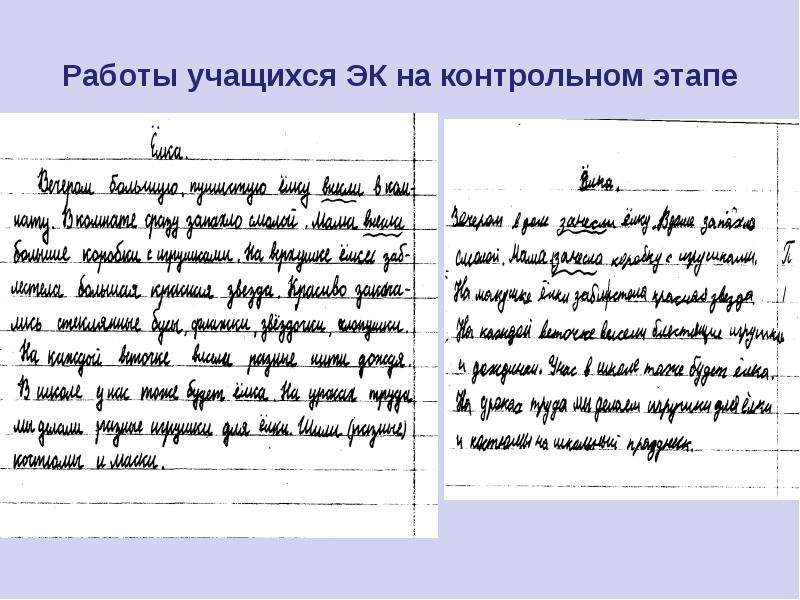 Работы учащихся ЭК на контрольном этапе
Ёлка.
Вечером большую, пушистую ёлку внесли в ком-
нату. В комнате сразу запахло смолой. Мама внесла
большие коробки с игрушками. На верхушке ёлки заб-
лестела большая красная звезда. Красиво закача-
лись стеклянные бусы, флажки, звёздочки, хлопушки.
На каждой веточке висели разные нити дождя.
В школе у нас тоже будет ёлка. На уроках труда
мы делали разные игрушки для ёлки. Шили (разные)
костюмы и маски.
Ёлка.
Вечером в доме занесли ёлку. В доме запахло
смолой. Мама занесла коробку с игрушками. П
На макушке ёлки заблистела красная звезда
На каждой веточке висели блестящие игрушки
и дождики. У нас в школе тоже будет ёлка.
На уроках труда мы делаем игрушки для ёлки
и костюмы на школьный праздник.